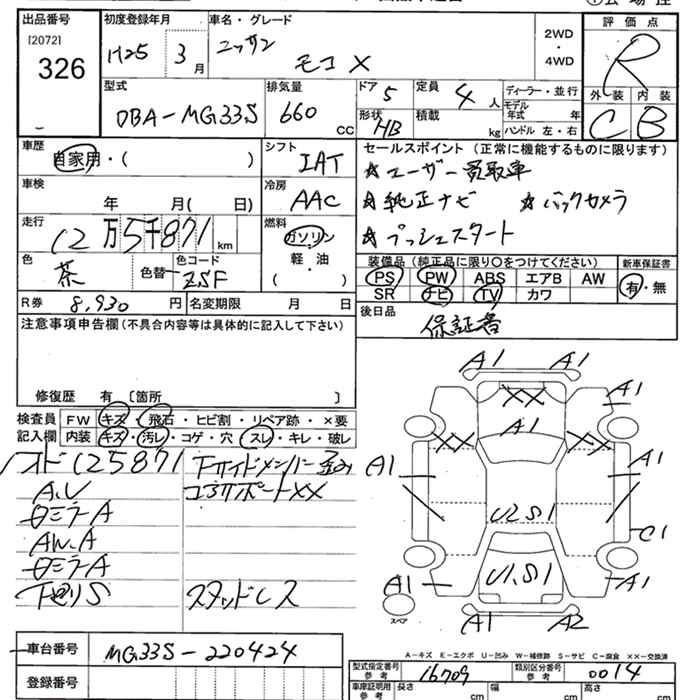 出品番号
[2072]
326
初度登録年月
H25 3月
車名・グレード
ニッサン モコ X
2WD・4WD
評価点
R
外装 内装
C B
型式
DBA-MG33S
排気量
660 CC
ドア 5
定員 4人
形状 HB
積載 kg
ディーラー・並行
モデル年式 年
ハンドル 左・右
車歴
自家用・( )
シフト
IAT
車検
年 月( 日)
冷房
AAC
走行
12万5千871 km
燃料
ガソリン
軽・油
( )
色
茶
色替
色コード
ZSF
R券 8,930円
名変期限 月 日
セールスポイント(正常に機能するものに限ります)
☆ユーザー買取車
☆純正ナビ ☆バックカメラ
☆プッシュスタート
装備品(純正品に限り〇をつけてください)
新車保証書
PS PW ABS エアB AW
有・無
SR ナビ TV カワ
後日品
保証書
注意事項申告欄(不具合内容等は具体的に記入して下さい)
修復歴 有 〔箇所 〕
検査員記入欄
FW キズ・飛石・ヒビ割・リペア跡・×要
内装 キズ・汚レ・コゲ・穴・スレ・キレ・破レ
125871
Fサイドメンバー
コアサポートXX
A.U
ミラーA
AW.A
ミラーA
下廻りS
スタッドレス
A1 A1
A1
XX
A1
XX XX
A1 A1
U2S1
C1
U1.S1
A1 A1
スペア
A1 A2
A-キズ E-エクボ U-凹み W-補修跡 S-サビ C-腐食 XX-交換済
車台番号
MG33S-220424
登録番号
型式指定番号 参考
16709
類別区分番号 参考
0014
車庫証明用 参考
長さ cm
幅 cm
高さ cm